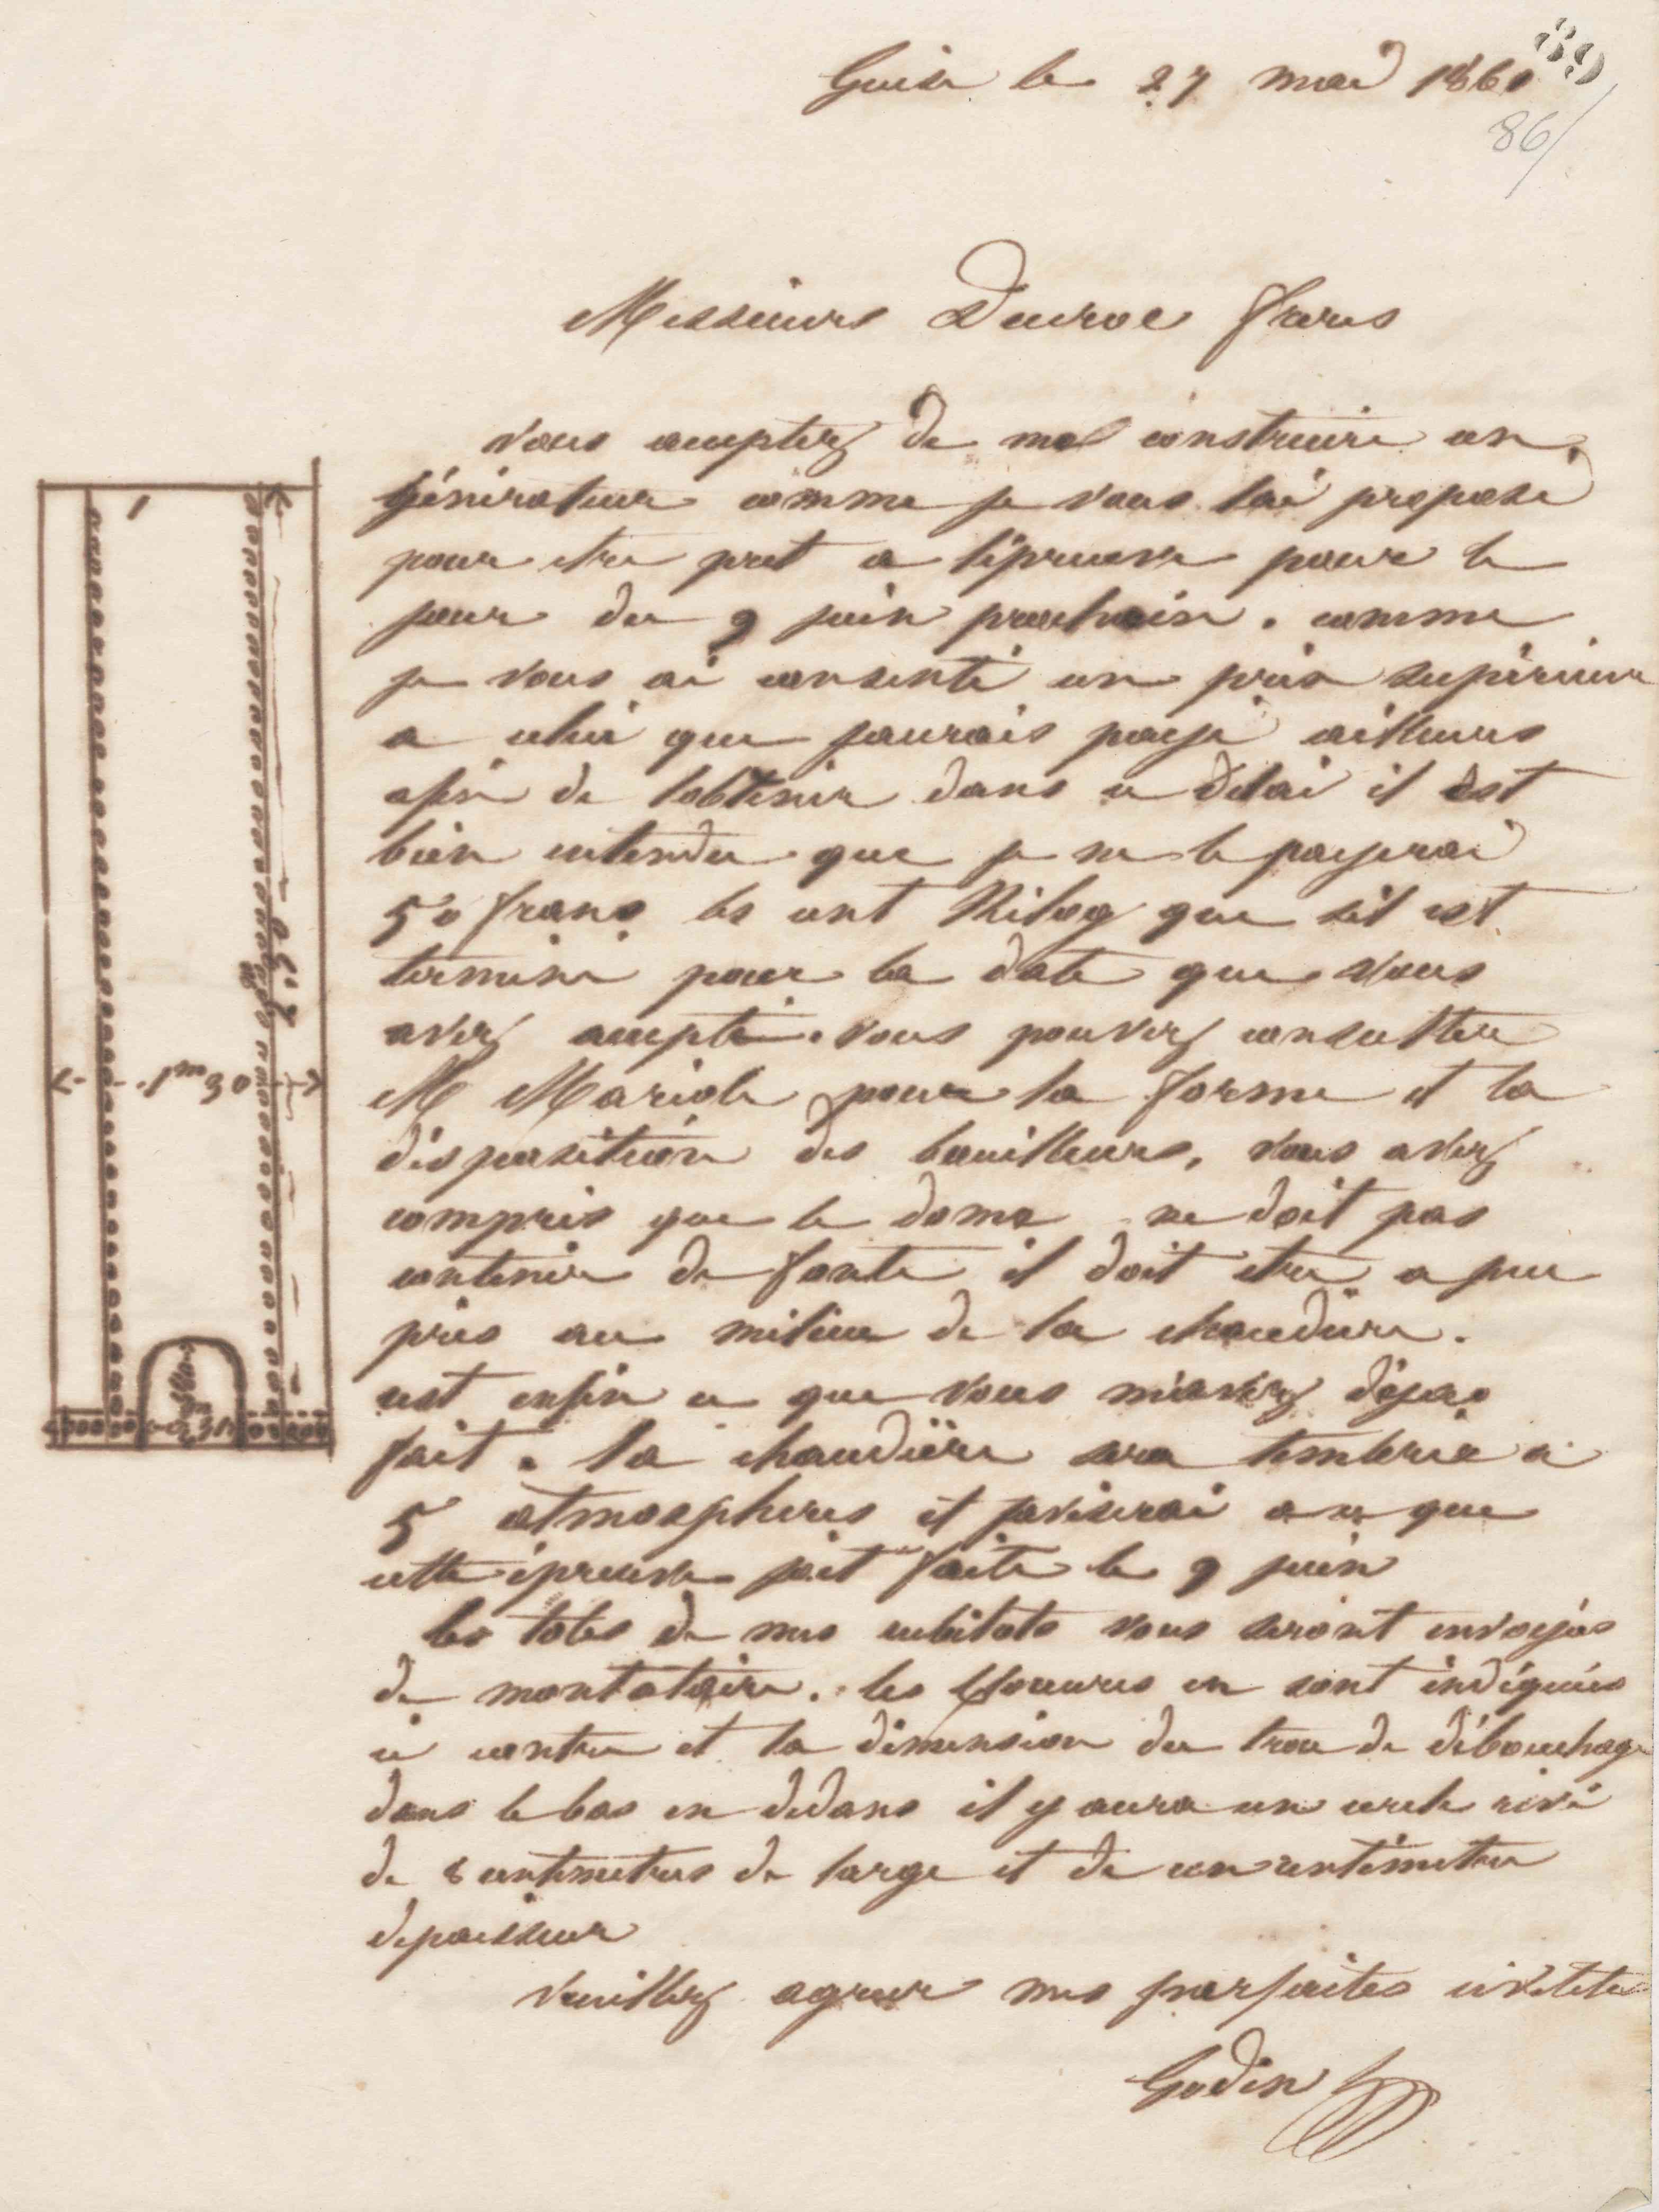 89
Guise le 27 mai 1860
86/
Messieurs Ducroc frères
vous acceptez de me construire un
générateur comme je vous lai proposé
pour etre pret a lépreuve pour le
jour du 9 juin prochain. comme
je vous ai consenti un prix supérieur
a celui que jaurais payé ailleurs
afin de lobtenir dans ce délai il est
bien entendu que je ne le payerai
50 francs les cent Kilog que sil est
terminé pour la date que vous
avez accepté. vous pouvez consulter
M Mariole pour la forme et la
disposition des bouilleurs, vous avez
compris que le dome ne doit pas
contenir de fonte il doit etre a peu
près au milieu de la chaudière.
cest enfin ce que vous m'avez déja
fait. la chaudière sera timbrée a
5 atmosphères et javiserai a ce que
cette épreuve soit faite le 9 juin
les toles de mes cubilots vous seront envoyés
de montataire. les clouures en sont indiquées
ci contre et la dimension du trou de débouchage
dans le bas en dedans il y aura un cercle rivé
de 8 centimetres de large et de un centimetre
depaisseur
veuillez agréer mes parfaites civilités
Godin
1m30